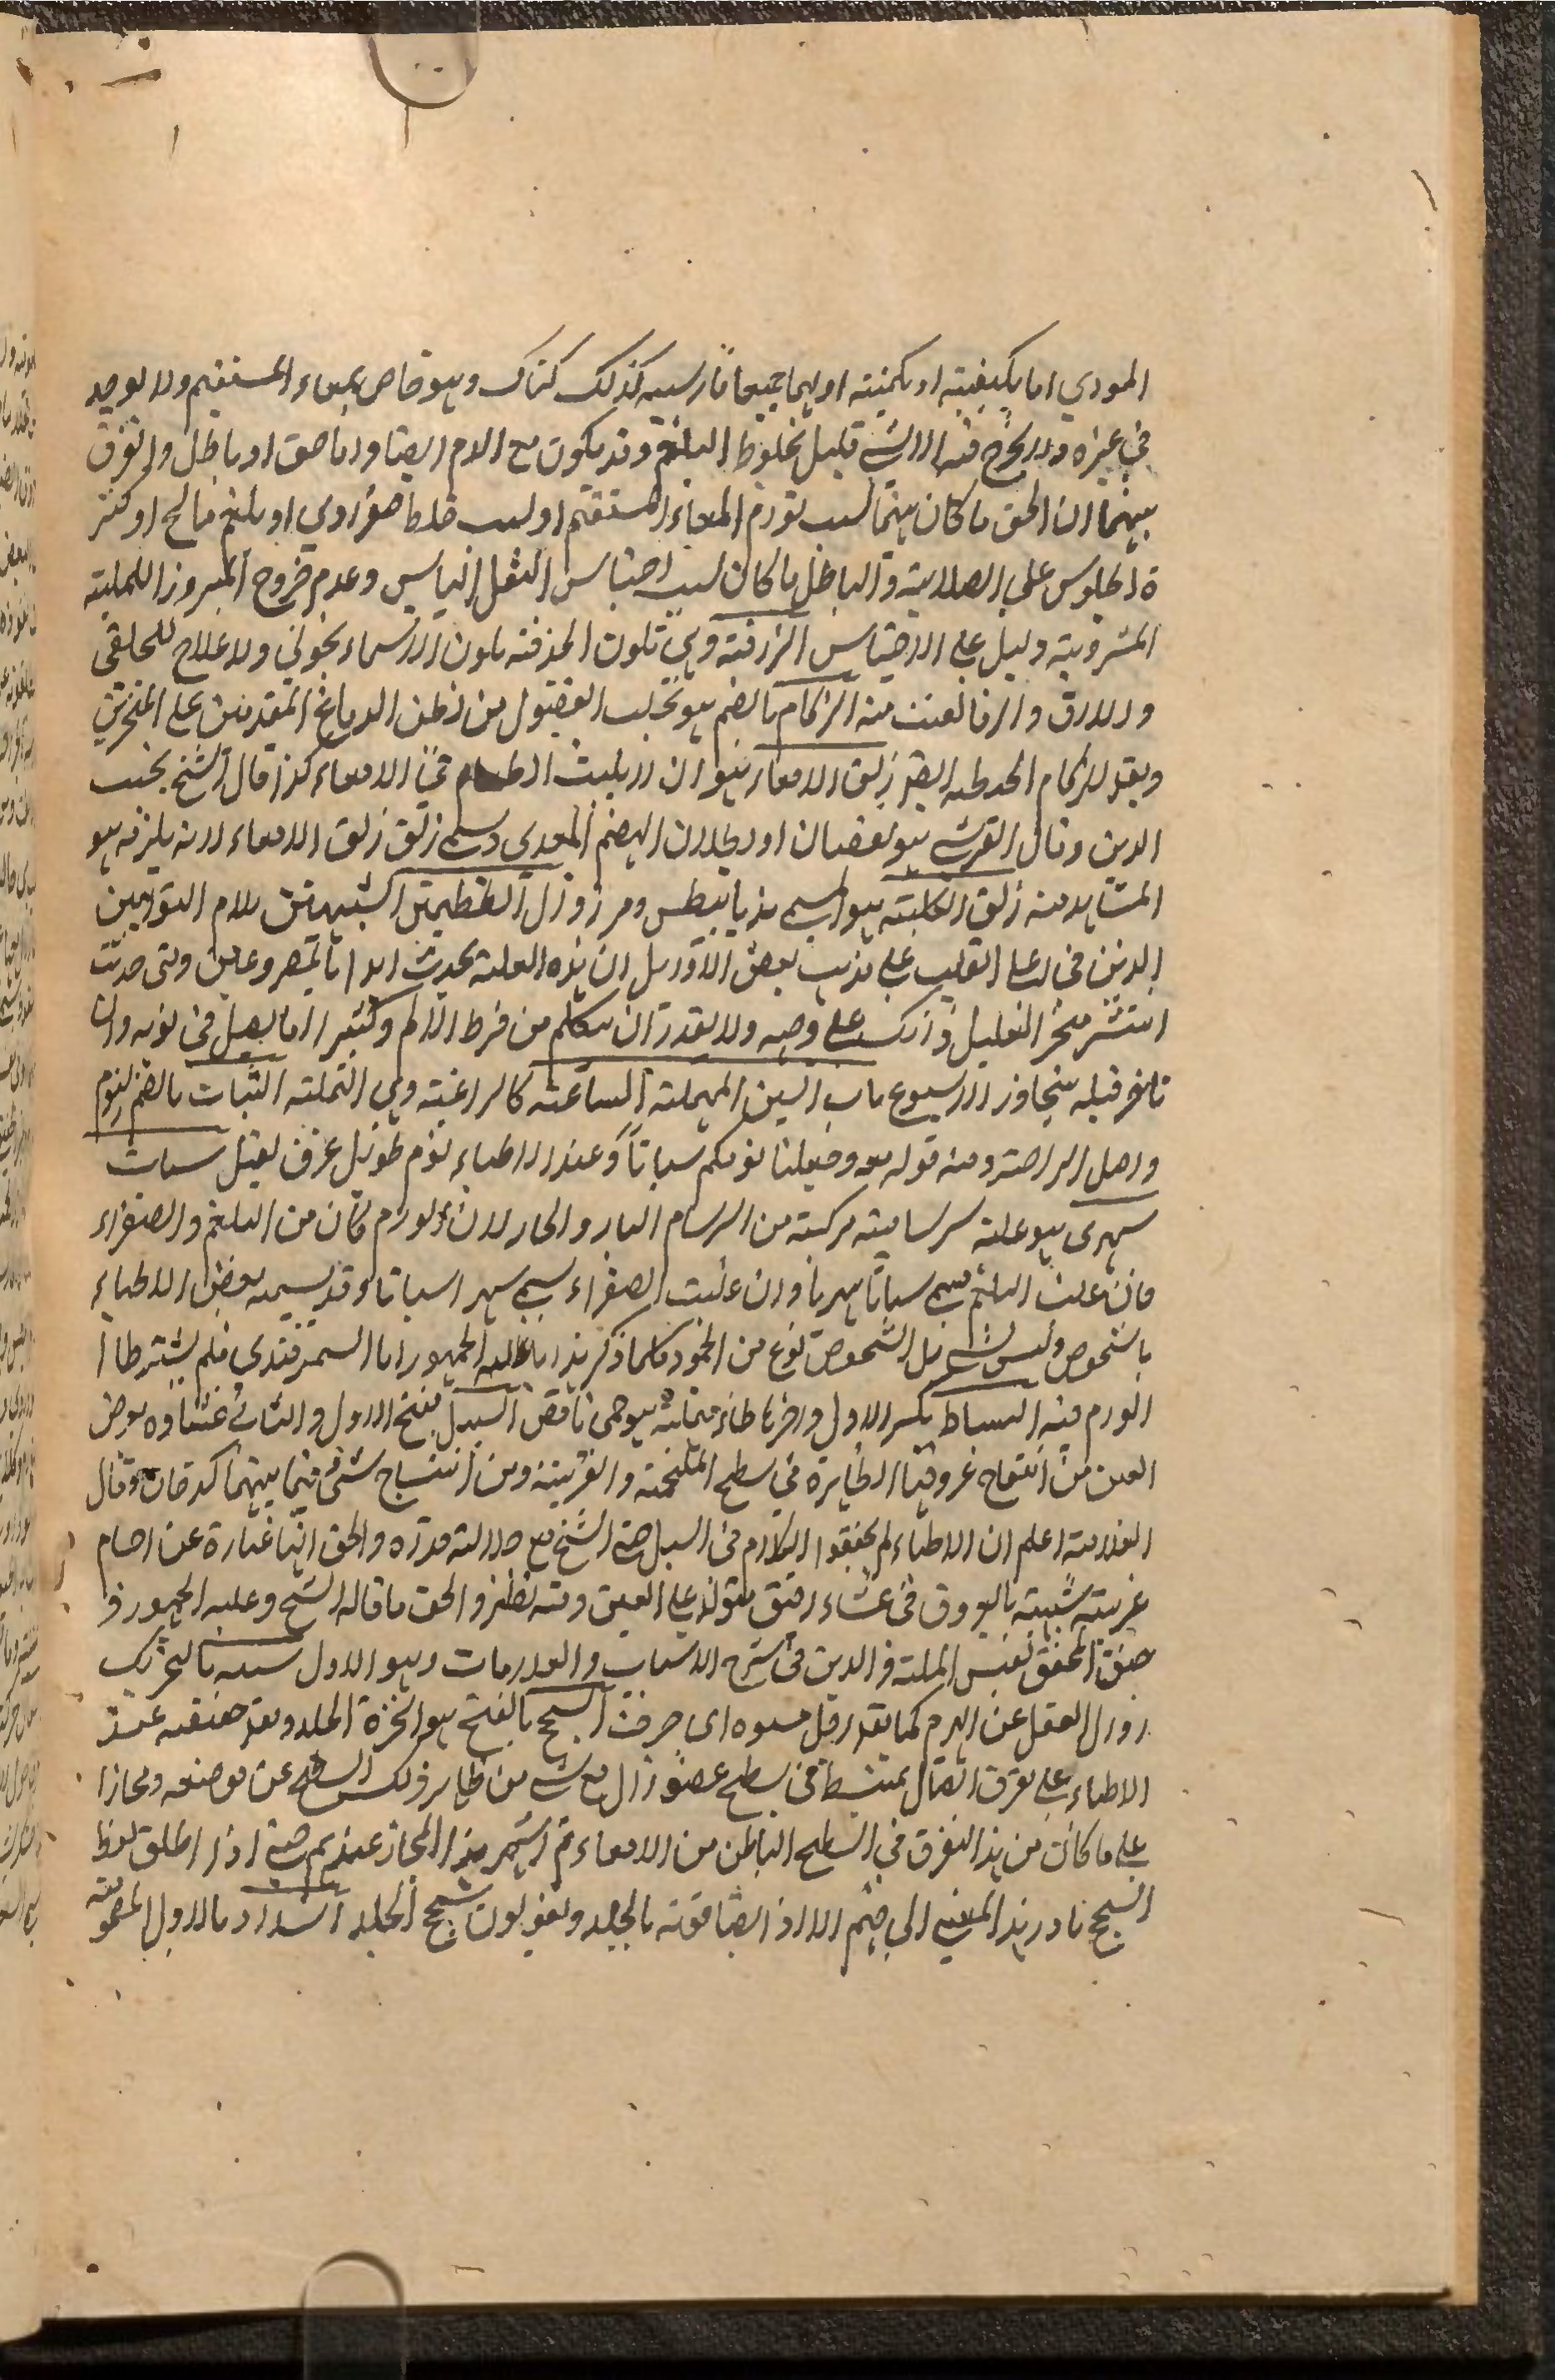 الموذي اما بكيفيته او بكميته او بهما جميعا فارسيه كذلك كناك وهو خاص بمعاء المستقيم ولا يوجد
في غيره ولا يخرج منه الا شي قليل مخلوط البلغم وقد يكون مع الدم ايضا واما حق او باطل والفرق
بينهما ان الحق ما كان منهما لسبب تورم المعاء المستقيم او لسبب خلط صفراوي او بلغم مالح او كثر
ة الجلوس على الصلابة والباطل ما كان لسبب احتباس الثفل اليابس وعدم خروج المبروز اللملية
المشروبة دليل على الاحتباس الزرقة وهي تلون الحدقة بلون الاسماء بخوني ولا علاج للخلقي
ولا للازرق والزفا لعنت منه الزكام بالضم هو تجلب الفضول من بطن الدماغ المقدمين على المنخرين
ويقال للزكام الحدطه ايضا زلق الامعاء هو ان لا يلبث الطعام في الامعاء كذا قال الشيخ نجيب
الدين وقال القرشي هو نقصان او بطلان الهضم المعدي وسمي زلق زلق الامعاء لانه يلزمه هو
المشاهد منه زلق الكلية هو المسمى بذيابيطس ومر زوال العظيمتين الشبيهتين بلام التوامين
الذين في اعلى القلب على مذهب بعض الاوايل ان هذه العلة يحدث ابدا بالمصروعين ومتى حدثت
انتشر منخر العليل وانكب على وجهه ولا يقدر ان يتكلم من فرط الالم وكثيرا ما يصل في يومه وان
تاخر قتله يتجاوز الاسبوع باب السين المهملة الساعية كالراغبة وهي النملة السبات بالضم النوم
واصل الراحة ومنه قوله تعه وجعلنا نومكم سباتاً وعند الاطباء نوم طويل غرق ثقيل سبات
سهري هو علة سرسامية مركبة من السرسام البارد والحار لان الورم كان من البلغم والصفراء
فان غلبت البلغم يسمى سباتا سهريا وان غلبت الصفراء يسمى سهرا سباتا وقد يسميه بعض الاطباء
بالشخوص وليس بشي بل الشخوص نوع من الجمود كلما ذكر هذا ما عليه الجمهور اما السمرقندي فلم يشترط ا
الورم فيه السباط بكسر الاول واخرها طاء مهملة هو حمى نافض السبل بفتح الاول والثاني غشاوة يعرض
العين من انتفاخ عروقها الظاهرة في سطح الملتحمة والقرنية ومن انتساج شئ فيما بينهما كدخان وقال
العلامة اعلم ان الاطباء لم يحققوا الكلام في السبل حتى الشيخ مع جلالته قدره والحق انها عبارة عن اجسام
غريبة شبيهة بالعروق في غشاء رقيق متولد على العين وفيه نظر والحق ما قاله الشيخ وعليه الجمهور و
حقق المحقق نفيس الملة والدين في شرح الاسباب والعلامات وهو الاول سبه بالتحريك
زوال العقل عن الهرم كما يقال رجل مسبوه اي خرفت السحج بالفتح هو انخراط الجلد وبعد حقيقه عند
الاطباء على تفرق اتصال منبسط في سطح عضو زال مع شي من ظاهر ذلك السطح عن موضعه ومجازا
على ما كان من هذا التفرق في السطح الباطن من الامعاء ثم اشتهر هذا المجاز عندهم حتى اذا اطلق لفظ
السحج تبادر هذا المعنى الى فهم الا اذا اضافوته بالجلد ويقولون سحج الجلد السدر بالاول المفتوحة